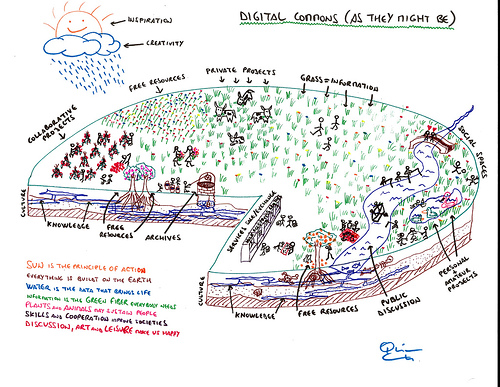 DIGITAL COMMONS (AS THEY MIGHT BE)
INSPIRATION
CREATIVITY
FREE RESOURCES
PRIVATE PROJECTS
GRASS = INFORMATION
COLLABORATIVE
PROJECTS
SOCIAL SPACES
CULTURE
KNOWLEDGE
FREE
RESOURCES
ARCHIVES
SERVICES
CULTURE
KNOWLEDGE
FREE RESOURCES
PUBLIC
DISCUSSION
PERSONAL
+
AMATEUR
PROJECTS
SUN IS THE PRINCIPLE OF ACTION
EVERYTHING IS BUILT ON THE EARTH
WATER IS THE DATA THAT BRINGS LIFE
INFORMATION IS THE GREEN FIBER EVERYBODY NEEDS
PLANTS AND ANIMALS MAY SUSTAIN PEOPLE
SKILLS AND COOPERATION IMPROVE SOCIETIES
DISCUSSION, ART AND LEISURE MAKE US HAPPY